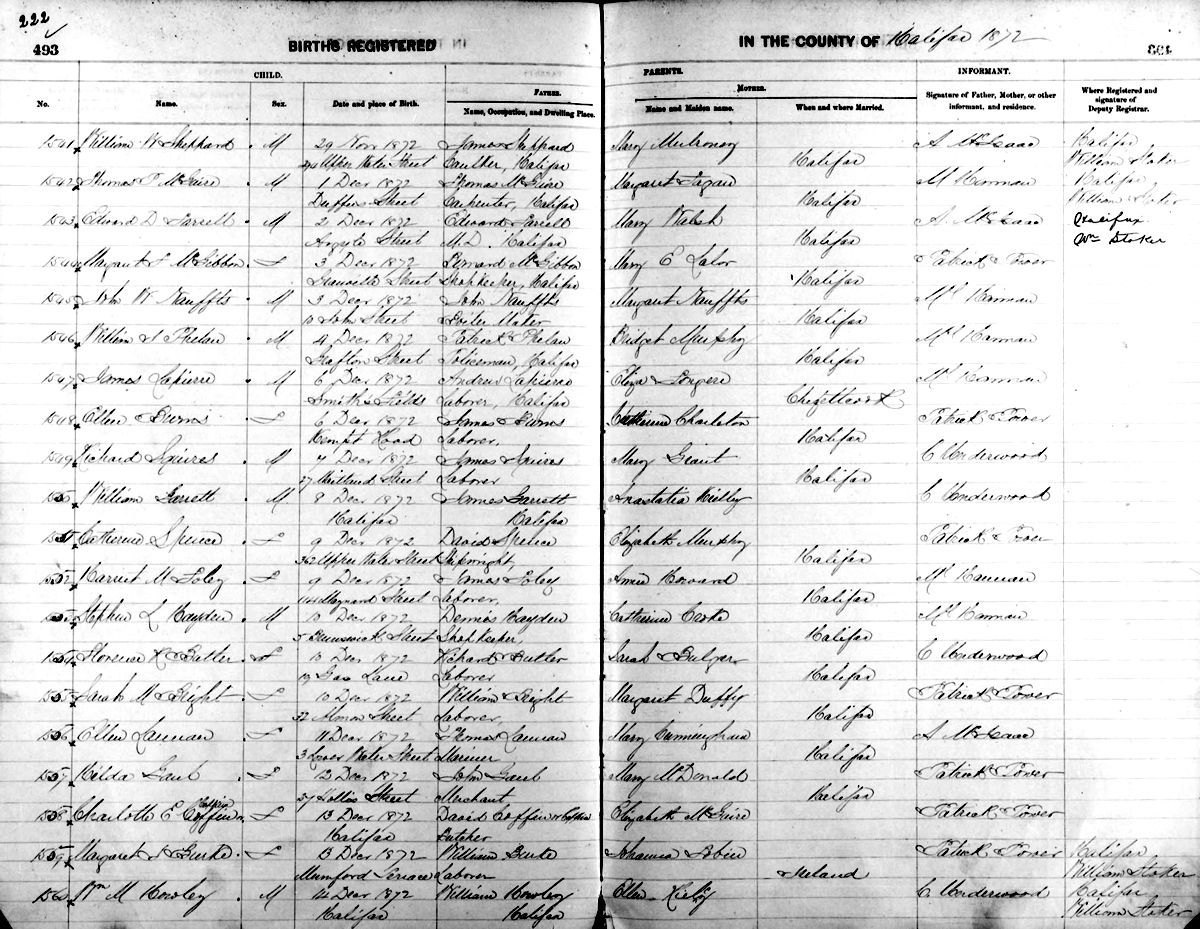 222
493
BIRTHS REGISTERED IN THE COUNTY OF Halifax 1872
CHILD. PARENTS. INFORMANT.
FATHER. MOTHER.
No. Name. Sex. Date and place of Birth. Name, Occupation, and Dwelling Place. Name and Maiden name. When and where Married. Signature of Father, Mother, or other informant, and residence. Where Registered and signature of Deputy Registrar.
1541 William W Sheppard M 29 Nov 1872 James Sheppard Mary Mulronay A McIsaac Halifax
Upper Water Street Caulker, Halifax Halifax William Stoker
1542 Thomas P McGuire M 1 Decr 1872 Thomas McGuire Margaret Fagan M Hannan Halifax
Duffus Street Carpenter, Halifax Halifax William Stoker
1543 Edward D Farrell M 2 Decr 1872 Edward Farrell Mary Walsh A McIsaac Halifax
Argyle Street M.D. Halifax Halifax Wm Stoker
1544 Margaret F McGibbon F 3 Decr 1872 Bernard McGibbon Mary E Lalor Patrick Power
Granville Street Shopkeeper, Halifax Halifax
1545 John W Nauffts M 3 Decr 1872 John Nauffts Margaret Nauffts Ml Hannan
10 John Street Boiler Maker Halifax
1546 William J Phelan M 4 Decr 1872 Patrick Phelan Bridget Murphy Ml Hannan
Grafton Street Policeman, Halifax Halifax
1547 James Lapierre M 6 Decr 1872 Andrew Lapierre Eliza Ml Hannan
Smith's Fields Laborer, Halifax Chezetcook
1548 Ellen Burns F 6 Decr 1872 James Burns Catherine Charleton Patrick Power
Kempt Road Laborer, Halifax
1549 Richard Squires M 7 Decr 1872 James Squires Mary Grant C Underwood
27 Maitland Street Laborer Halifax
1550 William Garrett M 8 Decr 1872 James Garrett Anastatia Rielly C Underwood
Halifax Halifax
1551 Catherine Spence F 9 Decr 1872 David Spence Elizabeth Murphy Patrick Power
Upper Water Street Shipwright, Halifax
1552 Harriet M Foley F 9 Decr 1872 James Foley Annie Howard Ml Hannan
Maynard Street Laborer, Halifax
1553 Stephen L Hayden M 10 Decr 1872 Dennis Hayden Catherine Ml Hannan
5 Brunswick Street Shopkeeper, Halifax
1554 Florence R Butler F 10 Decr 1872 Richard Butler Sarah Bulger C Underwood
19 Gas Lane Laborer Halifax
1555 Sarah M Bright F 10 Decr 1872 William Bright Margaret Duffy Patrick Power
32 Almon Street Laborer, Halifax
1556 Ellen Lannan F 11 Decr 1872 Thomas Lannan Mary Cunningham A McIsaac
3 Lower Water Street Mariner Halifax
1557 Hilda Gaul F 12 Decr 1872 John Gaul Mary McDonald Patrick Power
57 Hollis Street Merchant Halifax
1558 Charlotte E Coffin F 13 Decr 1872 David Coffin Elizabeth McGuire Patrick Power
Halifax Butcher
1559 Margaret A Burke F 13 Decr 1872 William Burke Johanna Tobin Patrick Power Halifax
Mumford Terrace Laborer Ireland William Stoker
1560 Wm M Howley M 14 Decr 1872 William Howley Ellen Kielly C. Underwood Halifax
Halifax Halifax William Stoker